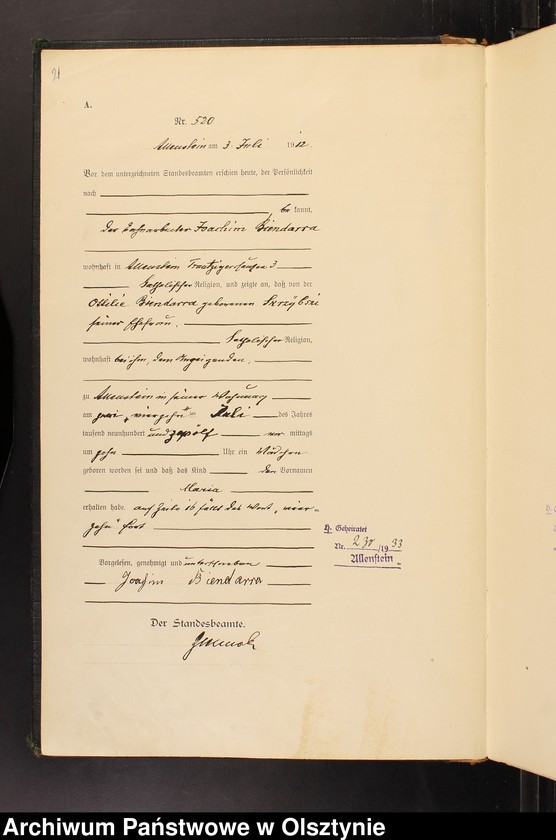 91
A.
Nr. 520
Allenstein am 3. Juli 1912.
Vor dem unterzeichneten Standesbeamten erschien heute, der Persönlichkeit
nach
be kannt,
der Bahnarbeiter Joachim Biendarra
wohnhaft in Allenstein 3
katholischer Religion, und zeigte an, daß von der
Ottilie Biendarra geborenen
seiner Ehefrau,
katholischer Religion,
wohnhaft bei ihm, dem Anzeigenden,
zu Allenstein in seiner Wohnung
am zwei „vierzehn“ten Juli des Jahres
tausend neunhundert und zwölf vor mittags
um zehn Uhr ein Mädchen
geboren worden sei und daß das Kind den Vornamen
Maria
erhalten habe. Auf Zeile 16 fällt das Wort „vier-
zehn“ fort
Vorgelesen, genehmigt und unterschrieben
Joachim Biendarra
Der Standesbeamte.
H. Geheiratet
Nr. /1933
Allenstein
Archiwum Państwowe w Olsztynie